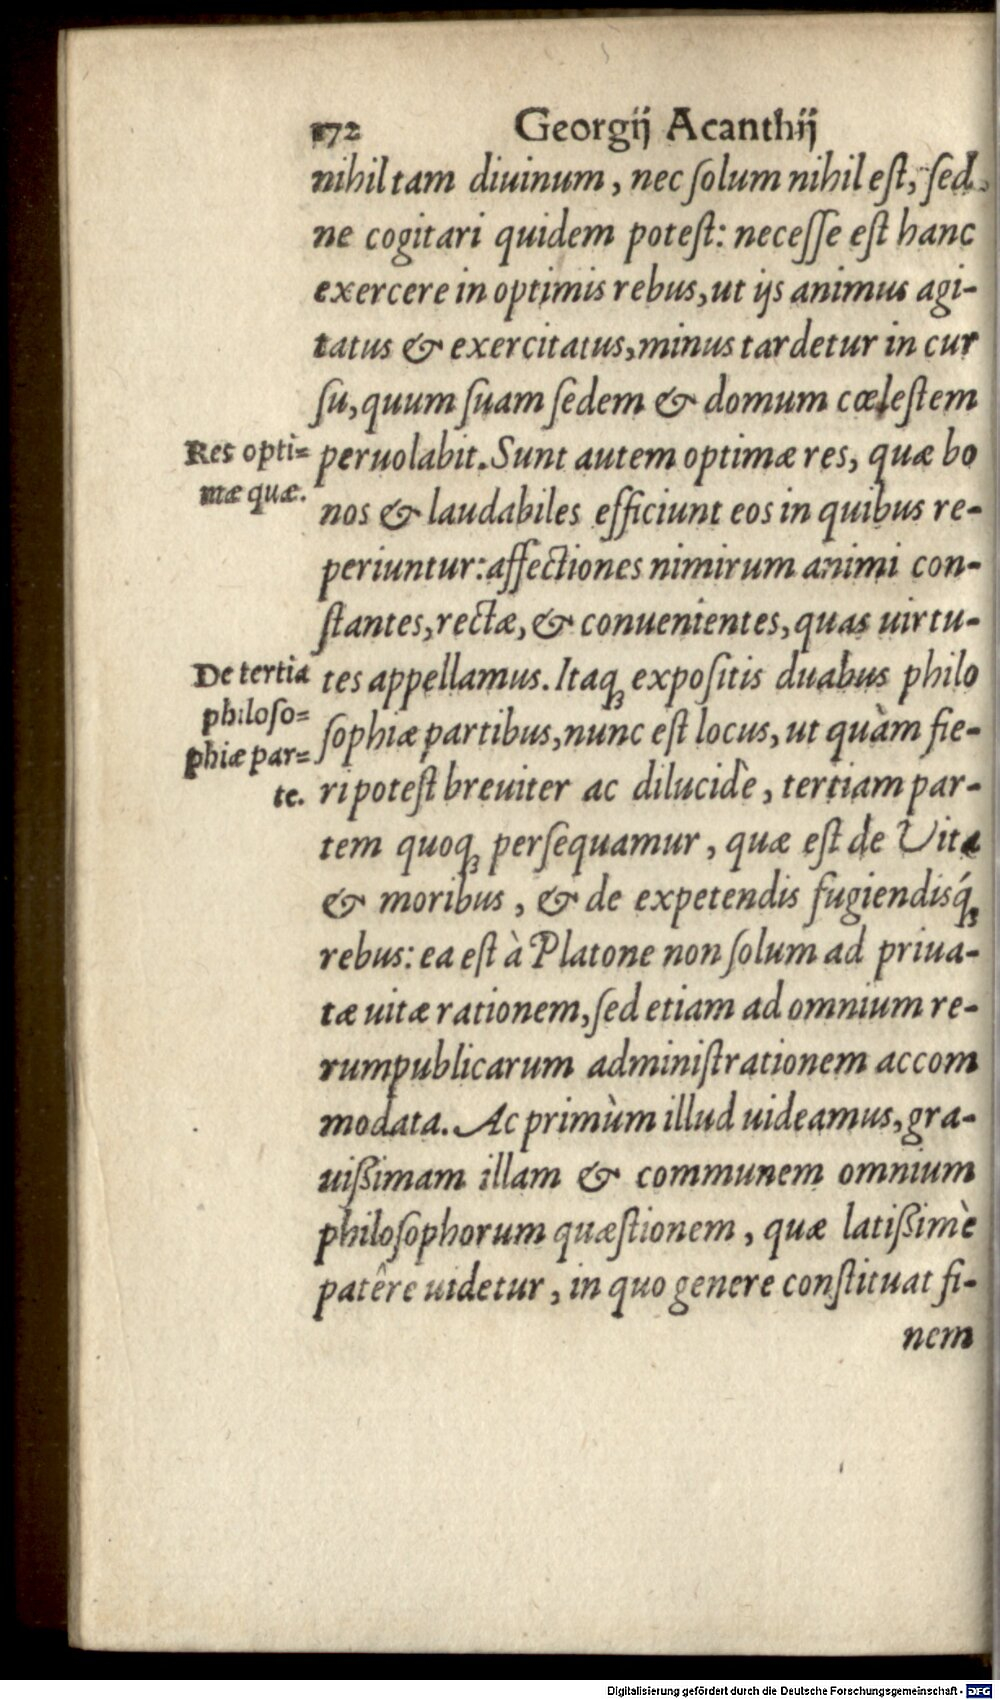 172 Georgij Acanthij
nihil tam diuinum, nec ſolum nihil eſt, ſed
ne cogitari quidem poteſt: neceſſe eſt hanc
exercere in optimis rebus, ut ijs animus agi-
tatus & exercitatus, minus tardetur in cur
ſu, quum ſuam ſedem & domum cœleſtem
Res opti=
mæ quæ.
peruolabit. Sunt autem optimæ res, quæ bo
nos & laudabiles efficiunt eos in quibus re-
periuntur: affectiones nimirum animi con-
ſtantes, rectæ, & conuenientes, quas uirtu-
De tertia
philoſo=
phiæ par=
te.
tes appellamus. Itaq; expoſitis duabus philo
ſophiæ partibus, nunc eſt locus, ut quàm fie-
ri poteſt breuiter ac dilucidè, tertiam par-
tem quoq; perſequamur, quæ eſt de Vita
& moribus, & de expetendis fugiendisq́;
rebus: ea eſt à Platone non ſolum ad priua-
tæ uitæ rationem, ſed etiam ad omnium re-
rumpublicarum adminiſtrationem accom
modata. Ac primùm illud uideamus, gra-
uißimam illam & communem omnium
philoſophorum quæſtionem, quæ latißimè
patêre uidetur, in quo genere conſtituat fi-
nem
Digitalisierung gefördert durch die Deutsche Forschungsgemeinschaft - DFG